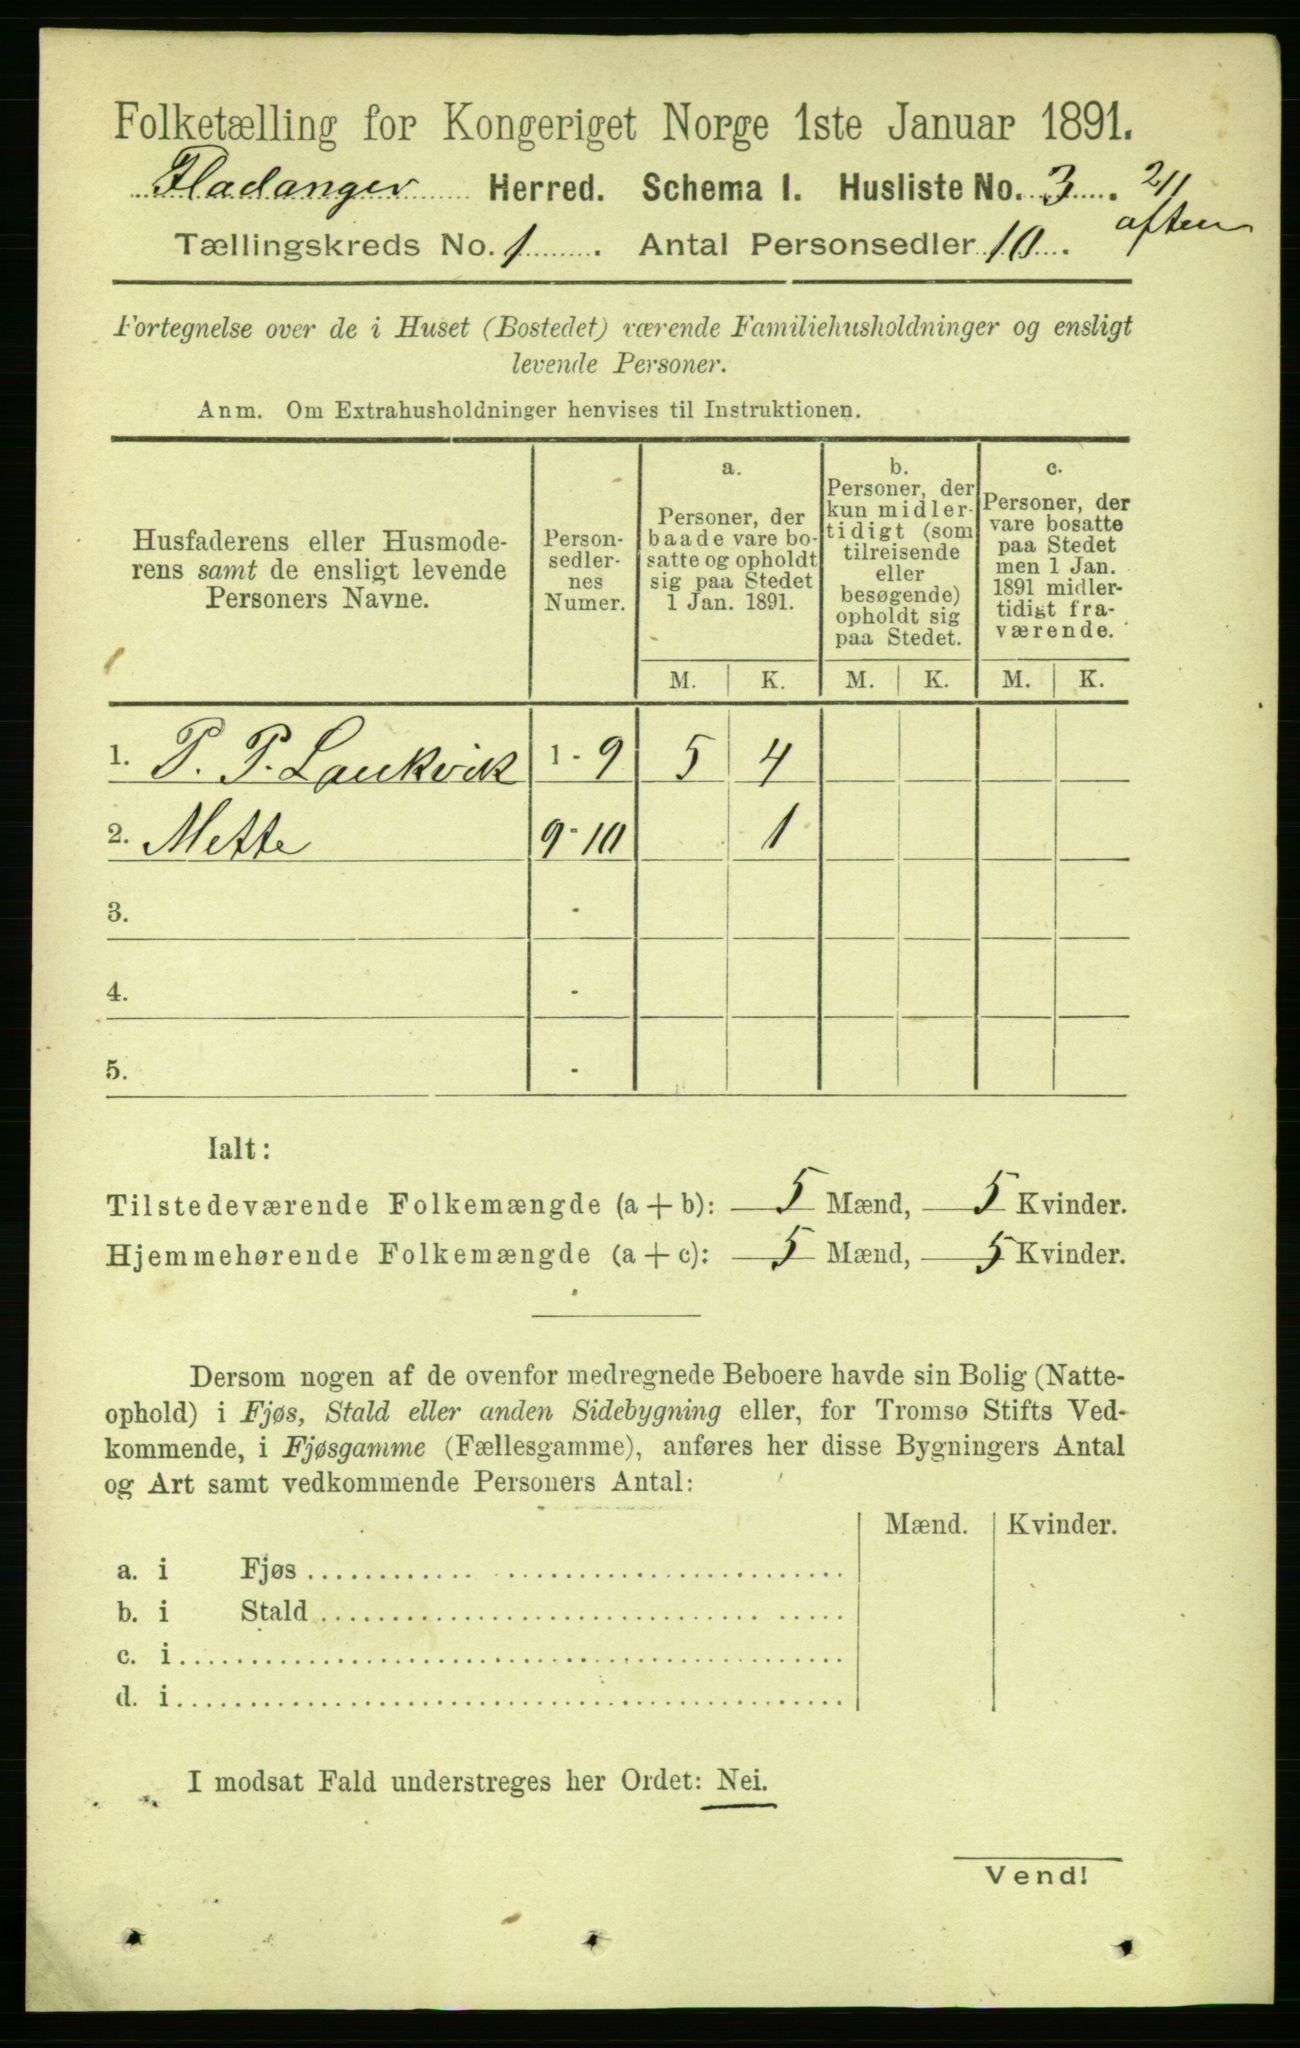 Folketælling for Kongeriget Norge 1ste Januar 1891.
Fladanger Herred. Schema I. Husliste No. 3. 2/1
aften
Tællingskreds No. 1. Antal Personsedler 10.
Fortegnelse over de i Huset (Bostedet) værende Familiehusholdninger og ensligt
levende Personer.
Anm. Om Extrahusholdninger henvises til Instruktionen.
Husfaderens eller Husmode-
rens samt de ensligt levende
Personers Navne.
Person-
sedler-
nes
Numer.
a.
Personer, der
baade vare bo-
satte og opholdt
sig paa Stedet
1 Jan. 1891.
b.
Personer, der
kun midler-
tidigt (som
tilreisende
eller
besøgende)
opholdt sig
paa Stedet.
c.
Personer, der
vare bosatte
paa Stedet
men 1 Jan.
1891 midler-
tidigt fra-
værende.
M. K. M. K. M. K.
1. P. P. Laukvik 1 - 9 5 4
2. Mette 9 - 10 1
3. -
4. -
5. -
Ialt:
Tilstedeværende Folkemængde (a + b): 5 Mænd, 5 Kvinder.
Hjemmehørende Folkemængde (a + c): 5 Mænd, 5 Kvinder.
Dersom nogen af de ovenfor medregnede Beboere havde sin Bolig (Natte-
ophold) i Fjøs, Stald eller anden Sidebygning eller, for Tromsø Stifts Ved-
kommende, i Fjøsgamme (Fællesgamme), anføres her disse Bygningers Antal
og Art samt vedkommende Personers Antal:
Mænd. Kvinder.
a. i Fjøs
b. i Stald
c. i
d. i
I modsat Fald understreges her Ordet: Nei.
Vend!